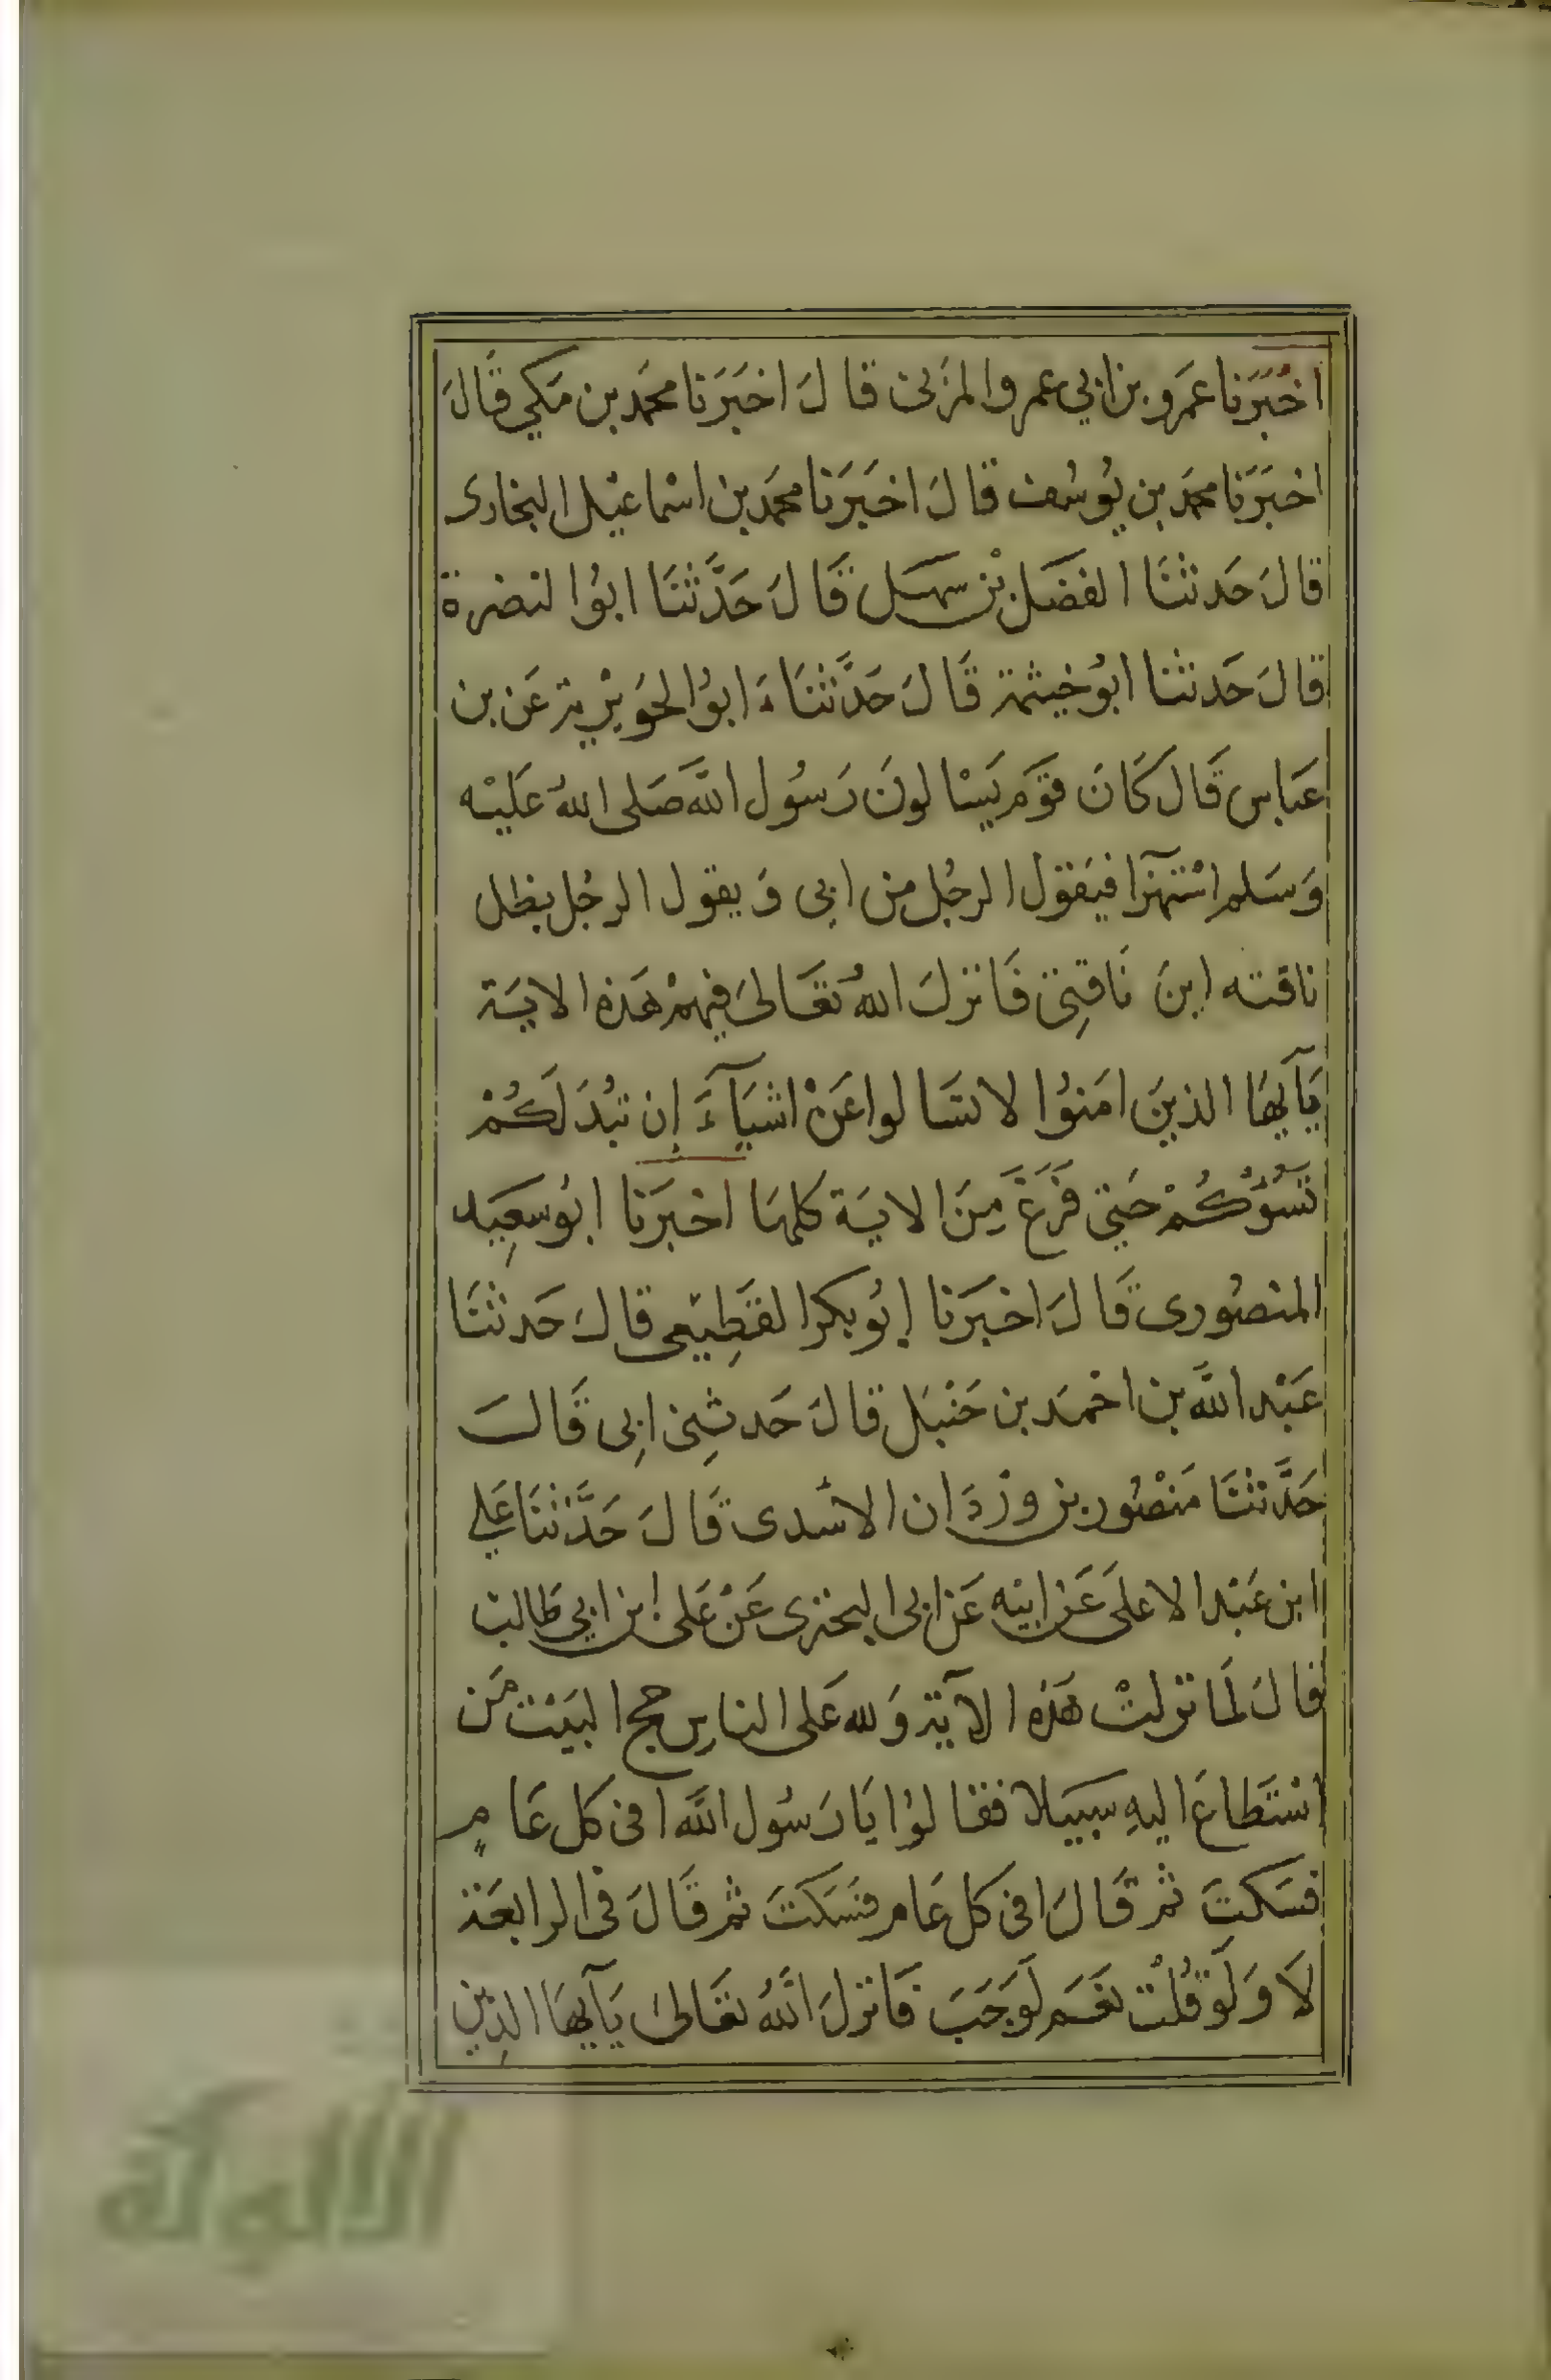 اخْبَرَنا عَمَرو بن ابي عمرو المزَني قالَ اخبَرَنا محمَد بن مَكي قَالَ
اخبَرَنا محمَد بن يُوسُف قالَ اخبَرَنا محمَد بن اسْماعيْل البخارى
قالَ حَدثنَا الفضَل بْن سهَل قَالَ حَدَّثنَا ابوُ النضرة
قالَ حَدثنا ابوُ خيثمة قَالَ حَدَّثنَاءَ ابوُ الحوَيْرية عَن بن
عَباس قَال كَانَ قوَم يَسْالونَ رَسُول اللَّه صَلى اللهُ عَليْه
وَسَلم اسْتهزَآ فيَقول الرجُل من ابي وَيقول الرجُل بظل
ناقته اينَ نَاقتِي فَانزلَ اللهُ تعَالىَ فيهمْ هَذه الايَة
يَآيهَا الذينَ امَنوُا لا تسَالوا عَنْ اشيَآءَ إن تبُدَ لَكُمْ
تسُؤكُمْ حَتي فَرَغَ مِنَ الايَة كلهَا اخبَرَنا ابُو سعِيَد
المنصُورى قَالَ اخبَرَنا ابُو بكر القَطِيْعى قالَ حَدثنَا
عَبْد اللَّه بن احْمَد بن حَنْبَل قالَ حَدثنِي ابِى قَالَ
حَدَّثنَا مَنْصُور بن وزْدَان الاسْدى قَالَ حَدَّثنَا عَلي
ابن عَبْد الاعلىَ عَن ابيْه عَن ابى البختري عَنْ عَلى بن ابي طَالب
قالَ لَما نزلتْ هَذه الآية وَلله عَلى الناسِ حج البَيْت مَن
اسْتَطاعَ اليهِ سبيَلا فقالوُا يَا رَسُول اللَّه افى كَل عَامٍ
فسَكتَ ثمْ قَالَ افى كل عَام فسَكَتَ ثم قَالَ فى الرابعَة
لَا وَلَو قُلْت نعَم لَوَجَبَ فَانزلَ اللَّهُ تعَالىَ يَآيهَا الذِين
الألوكة